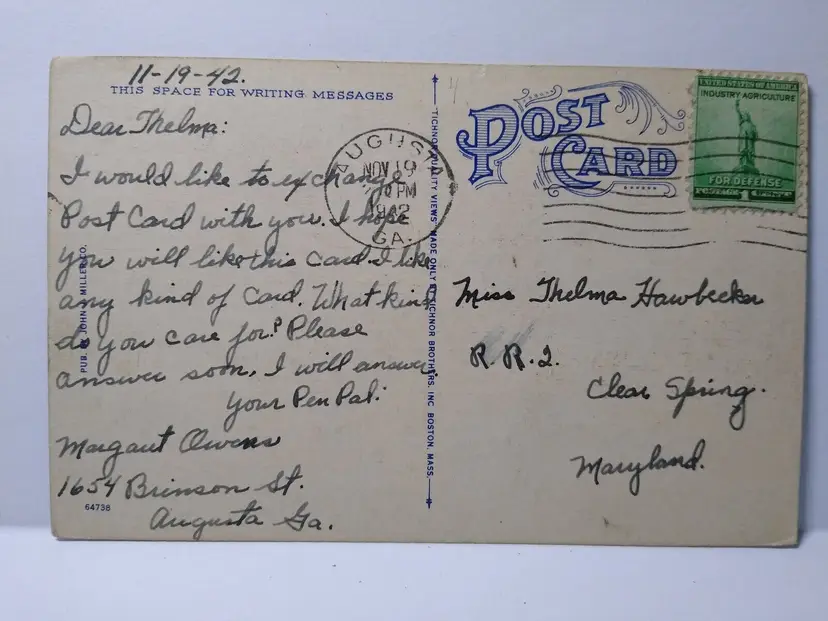 11-19-42.
THIS SPACE FOR WRITING MESSAGES
Dear Thelma:
I would like to exchange
Post Card with you. I hope
you will like this card. I like
any kind of Card. What kind
do you care for? Please
answer soon, I will answer.
Your Pen Pal:
Margaret Owens
1654 Brinson St.
Augusta Ga.
64738
PUB. BY JOHN MILLER CO.
TICHNOR QUALITY VIEWS MADE ONLY BY TICHNOR BROTHERS, INC. BOSTON, MASS.
AUGUSTA
NOV 19
PM
1942
GA.
POST
CARD
UNITED STATES OF AMERICA
INDUSTRY AGRICULTURE
FOR DEFENSE
1
Miss Thelma Hawbecker
R.R.2.
Clear Spring.
Maryland.